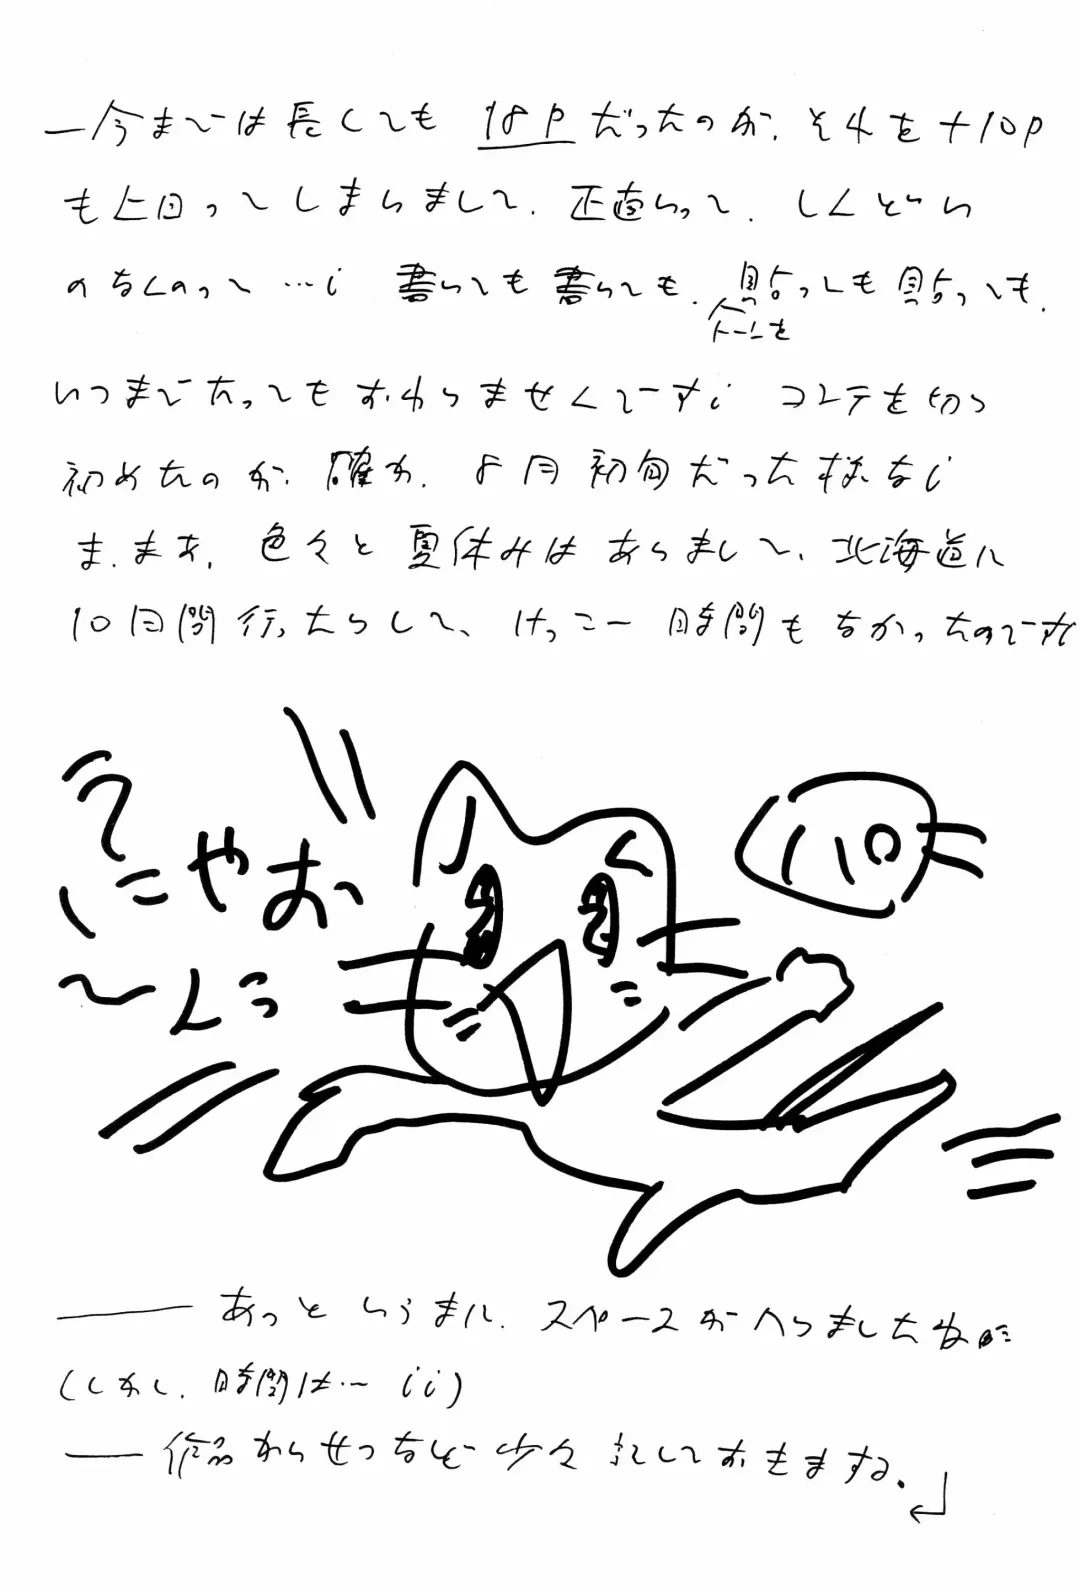 一今までは長くても 18Pだったのが、それを+10P
も上回ってしまいまして、正直いって、しんどい
のなんのって…; 書いても書いても、貼っても貼っても、
トーンを
いつまでたってもおわらませんでーす; コレテを切り
初めたのが、確か、8月初旬だった様な;
ま、まあ、色々と夏休みはありまして、北海道に
10日間行ったりして、けっこー時間もなかったのでーす
にゃお
〜んっ
あっというまに、スペースがへりましたな
(しかし、時間は… ;;)
作品かいせつなど少々記しておきまする。